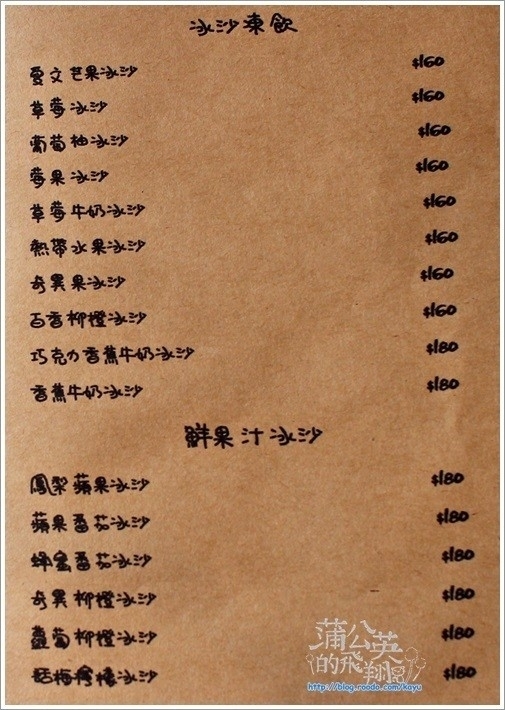 冰沙凍飲
夏文芒果冰沙 $160
草莓冰沙 $160
葡萄柚冰沙 $160
莓果冰沙 $160
草莓牛奶冰沙 $160
熱帶水果冰沙 $160
奇異果冰沙 $160
百香柳橙冰沙 $160
巧克力香蕉牛奶冰沙 $180
香蕉牛奶冰沙 $180
鮮果汁冰沙
鳳梨蘋果冰沙 $180
蘋果番茄冰沙 $180
蜂蜜番茄冰沙 $180
奇異柳橙冰沙 $180
蘿蔔柳橙冰沙 $180
桔梅檸檬冰沙 $180
蒲公英
的飛翔
http://blog.roodo.com/kayu